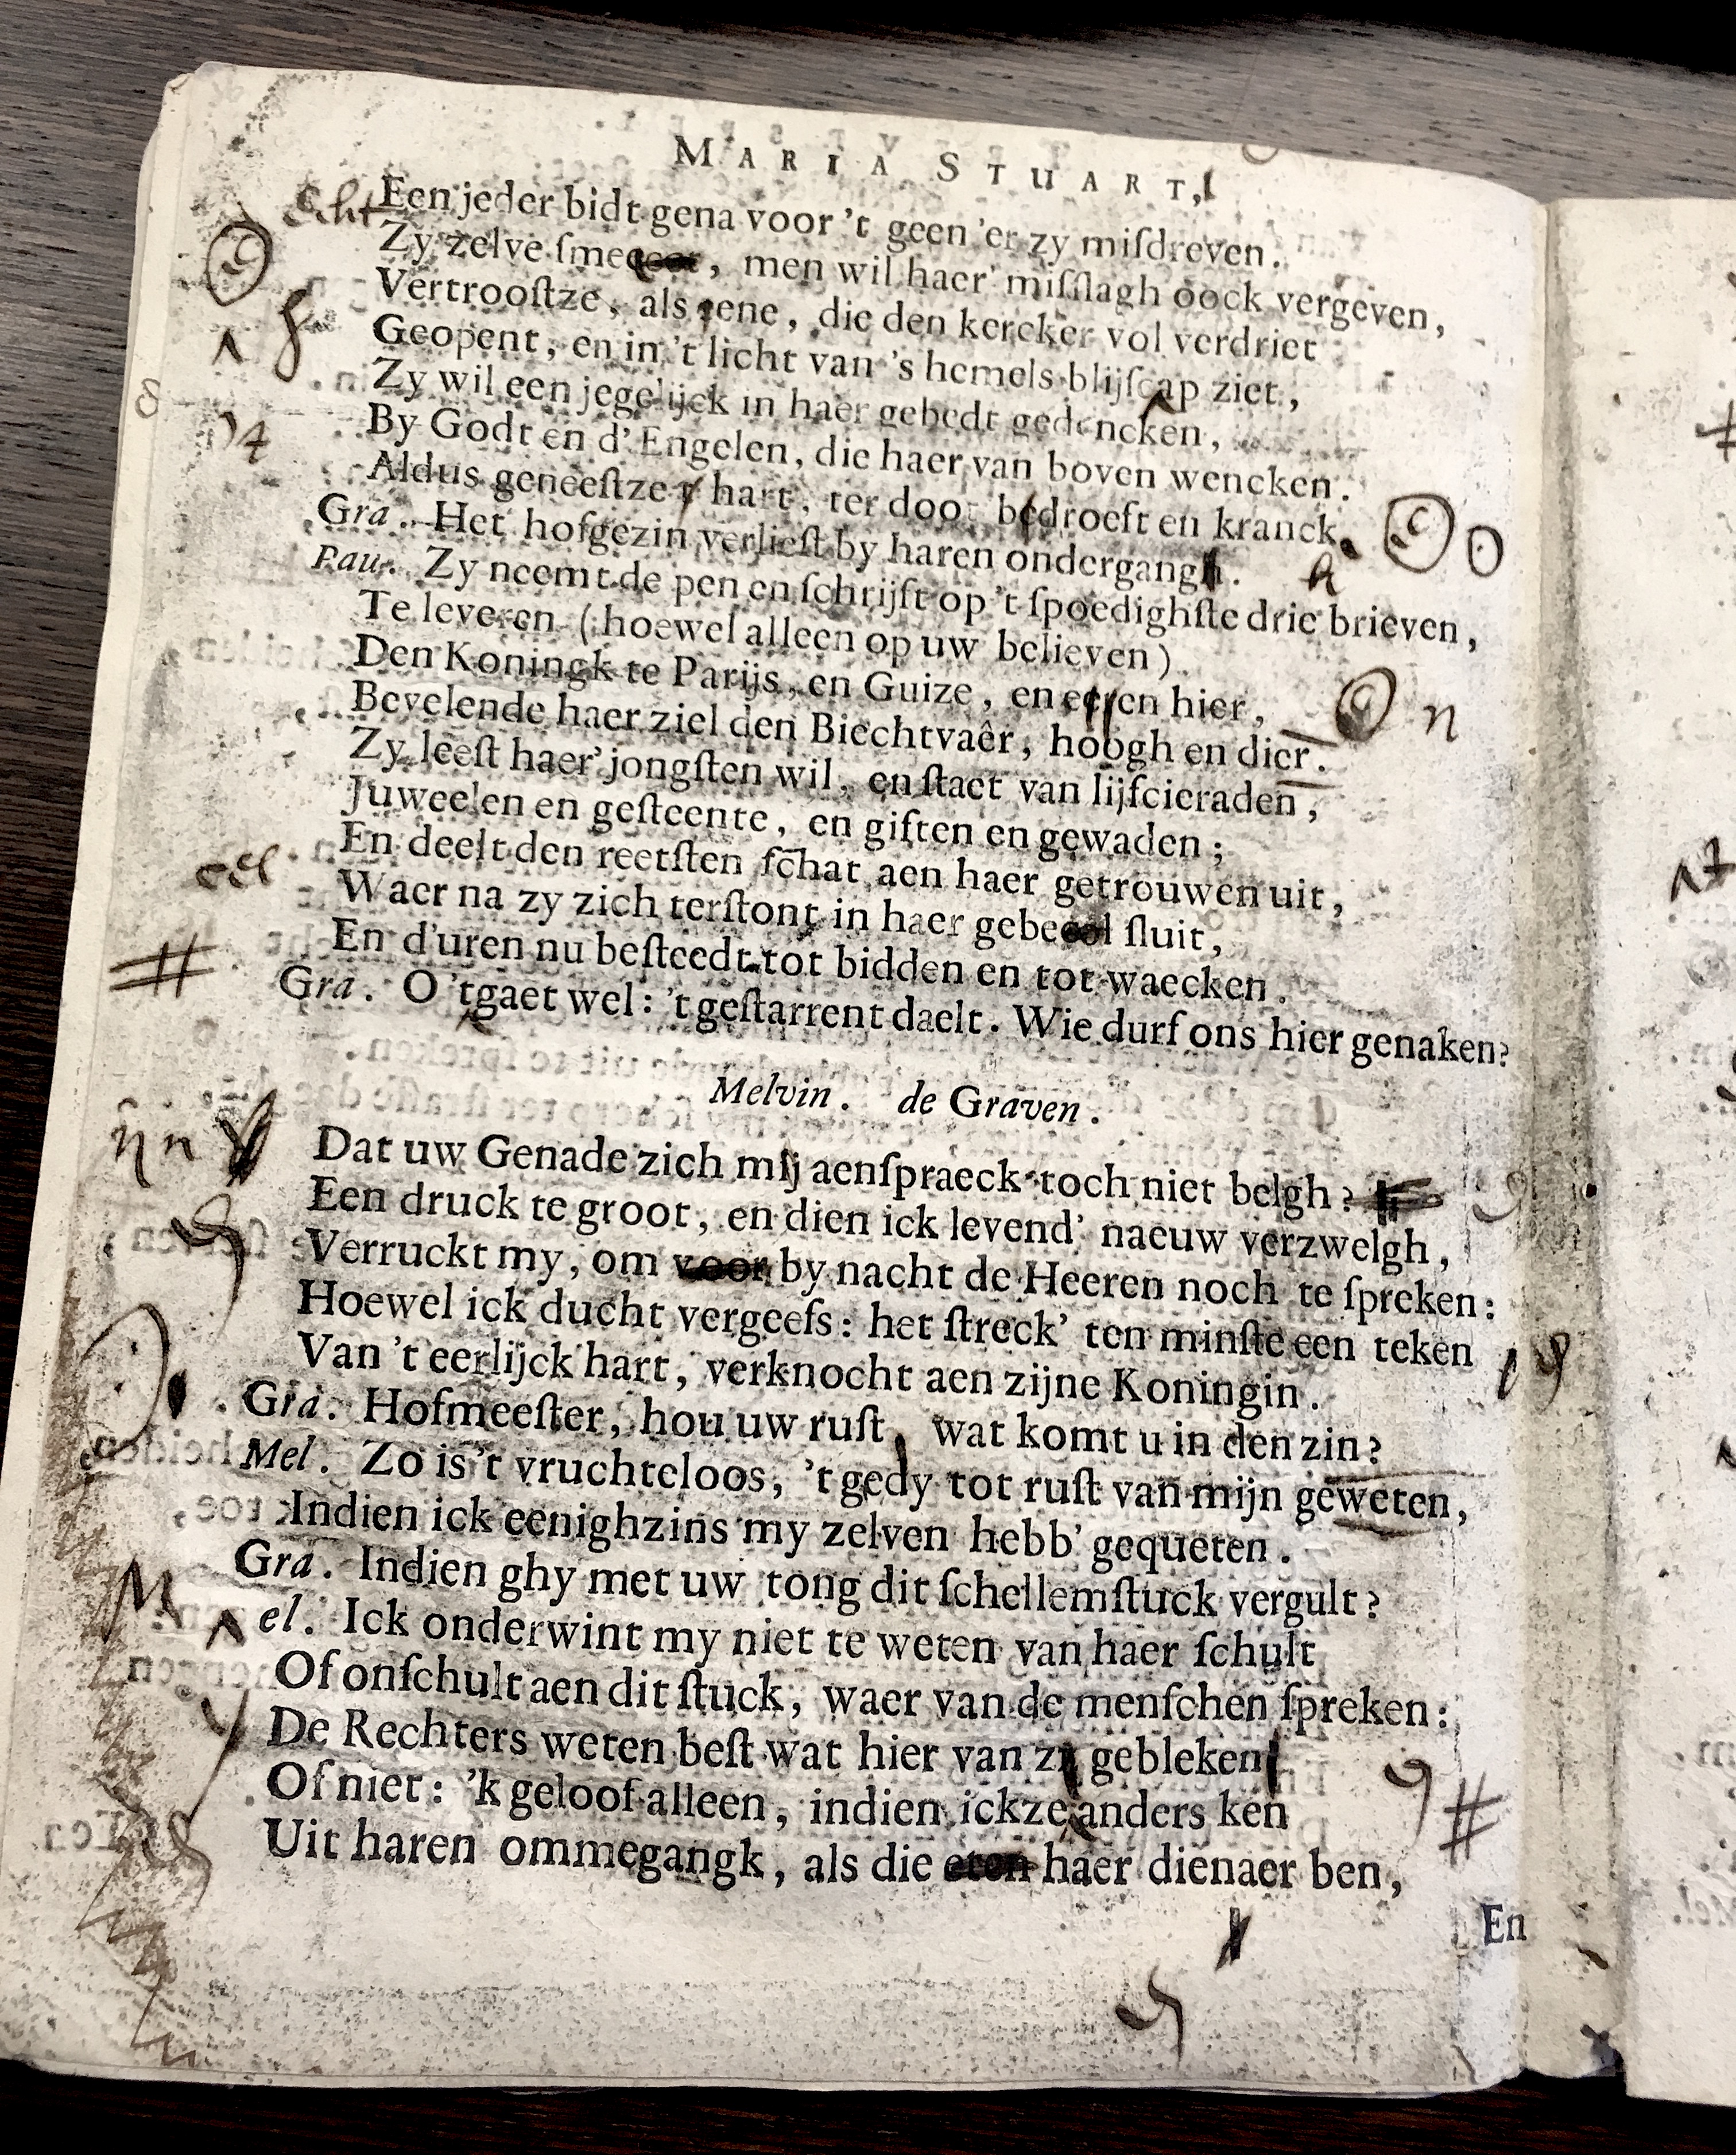 MARIA STUART,
Een jeder bidt gena voor 't geen 'er zy miſdreven.
Zy zelve ſmee , men wil haer' miſſlagh oock vergeven,
Vertrooſtze, als gene, die den kercker vol verdriet
Geopent, en in 't licht van 's hemels blijſcap ziet,
Zy wil een jegelijck in haer gebedt gedencken,
By Godt en d' Engelen, die haer van boven wencken.
Aldus geneeſtze hart, ter doot bedroeft en kranck.
Gra. Het hofgezin verlieſt by haren ondergangh.
Pau. Zy neemt de pen en ſchrijft op 't ſpoedighſte drie brieven,
Te leveren (hoewel alleen op uw believen)
Den Koningk te Parijs, en Guize, en hier,
Bevelende haer ziel den Biechtvaêr, hoogh en dier.
Zy leeſt haer' jongſten wil, en ſtaet van lijfcieraden,
Juweelen en geſteente, en giften en gewaden;
En deelt den reetſten ſchat aen haer getrouwen uit,
Waer na zy zich terſtont in haer gebe ſluit,
En d'uren nu beſteedt tot bidden en tot waecken.
Gra. O 'tgaet wel: 't geſtarrent daelt. Wie durf ons hier genaken?
Melvin. de Graven.
Dat uw Genade zich mij aenſpraeck toch niet belgh?
Een druck te groot, en dien ick levend' naeuw verzwelgh,
Verruckt my, om voor by nacht de Heeren noch te ſpreken:
Hoewel ick ducht vergeefs: het ſtreck' ten minſte een teken
Van 't eerlijck hart, verknocht aen zijne Koningin.
Gra. Hofmeeſter, hou uw ruſt, wat komt u in den zin?
Mel. Zo is 't vruchteloos, 't gedy tot ruſt van mijn geweten,
Indien ick eenighzins my zelven hebb' gequeten.
Gra. Indien ghy met uw tong dit ſchellemſtuck vergult?
M el. Ick onderwint my niet te weten van haer ſchult
Of onſchult aen dit ſtuck, waer van de menſchen ſpreken:
De Rechters weten beſt wat hier van z gebleken
Of niet: 'k geloof alleen, indien ickze anders ken
Uit haren ommegangk, als die eten haer dienaer ben,
En